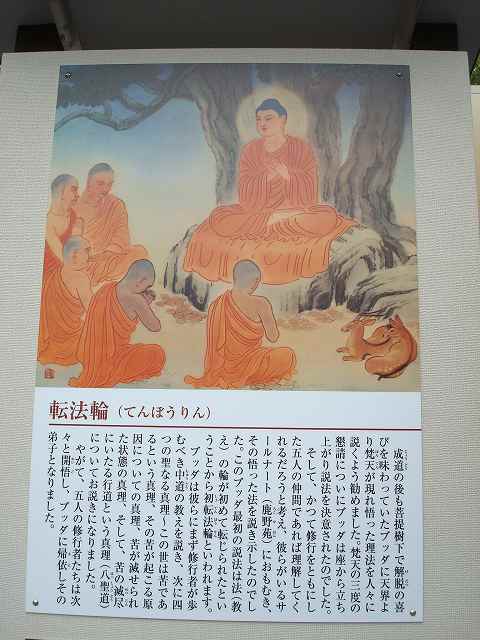 転法輪（てんぼうりん）
成道の後も菩提樹下で解脱の喜
びを味わっていたブッダに天界よ
り梵天が現れ悟った理法を人々に
説くよう勧めました。梵天の三度の
懇請についにブッダは座から立ち
上がり説法を決意されたのでした。
そして、かつて修行をともにし
た五人の仲間であれば理解してく
れるだろうと考え、彼らがいるサ
ールナート（鹿野苑）におもむき、
その悟った法を説き示したのでし
た。このブッダ最初の説法は法（教
え）の輪が初めて転じられたとい
うことから初転法輪といわれます。
ブッダは彼らにまず修行者が歩
むべき中道の教えを説き、次に四
つの聖なる真理～この世は苦であ
るという真理、その苦が起こる原
因についての真理、苦が滅せられ
た状態の真理、そして、苦の滅尽
にいたる行道という真理（八聖道）
についてお説きになりました。
やがて、五人の修行者たちは次
々と開悟し、ブッダに帰依しその
弟子となりました。